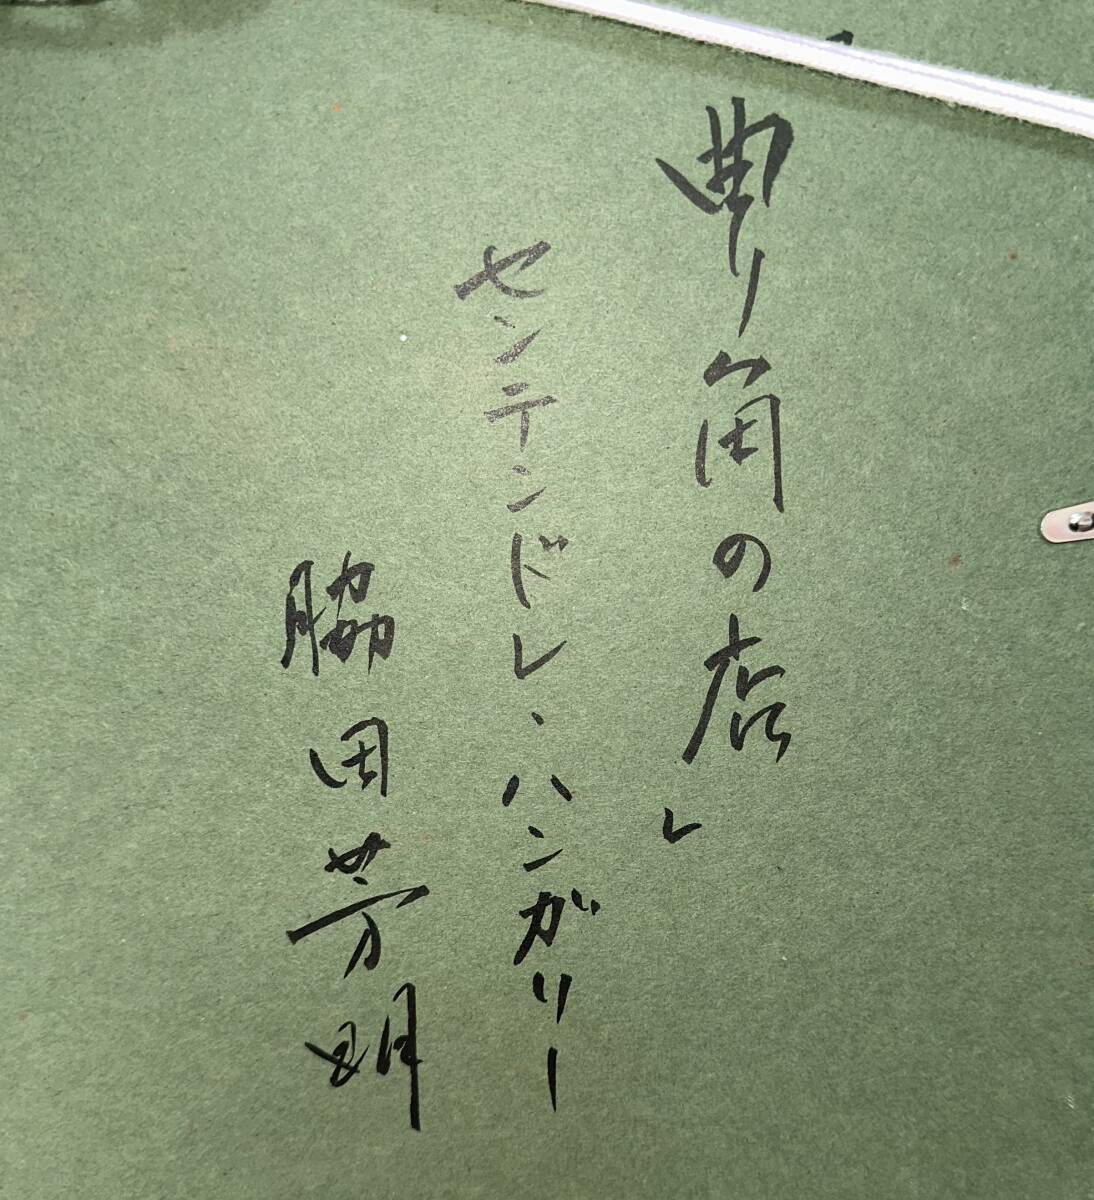 曲り角の店」
センテンドレ、ハンガリー
脇田芳明